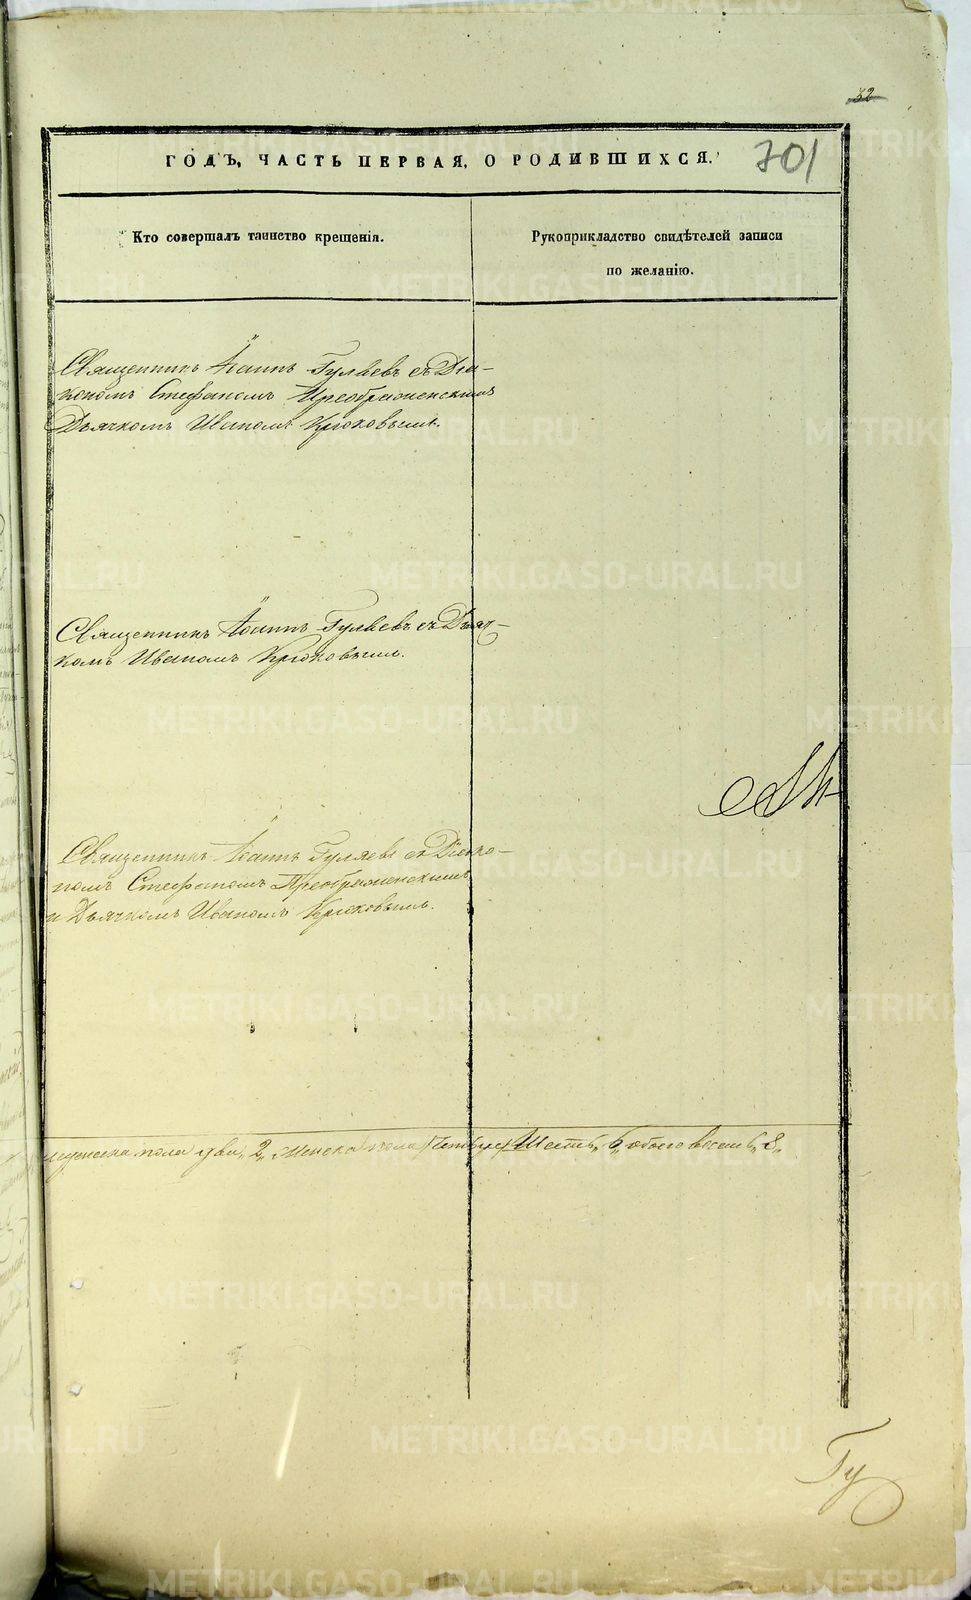 32
ГОДЪ, ЧАСТЬ ПЕРВАЯ, О РОДИВШИХСЯ.
701
Кто совершалъ таинство крещенія.
Рукоприкладство свидѣтелей записи
по желанію.
Священникъ Іоаннъ Гуляевъ съ Діа-
кономъ Стефаномъ Преображенскимъ
Дьячкомъ Иваномъ Крюковымъ.
Священникъ Іоаннъ Гуляевъ съ Дьяч-
комъ Иваномъ Крюковымъ.
Священникъ Іоаннъ Гуляевъ съ Діако-
номъ Стефаномъ Преображенскимъ
и Дьячкомъ Иваномъ Крюковымъ.
мужеска пола два, 2, женска пола Шесть, 6, обоего восемь, 8,
Гу
METRIKI.GASO-URAL.RU